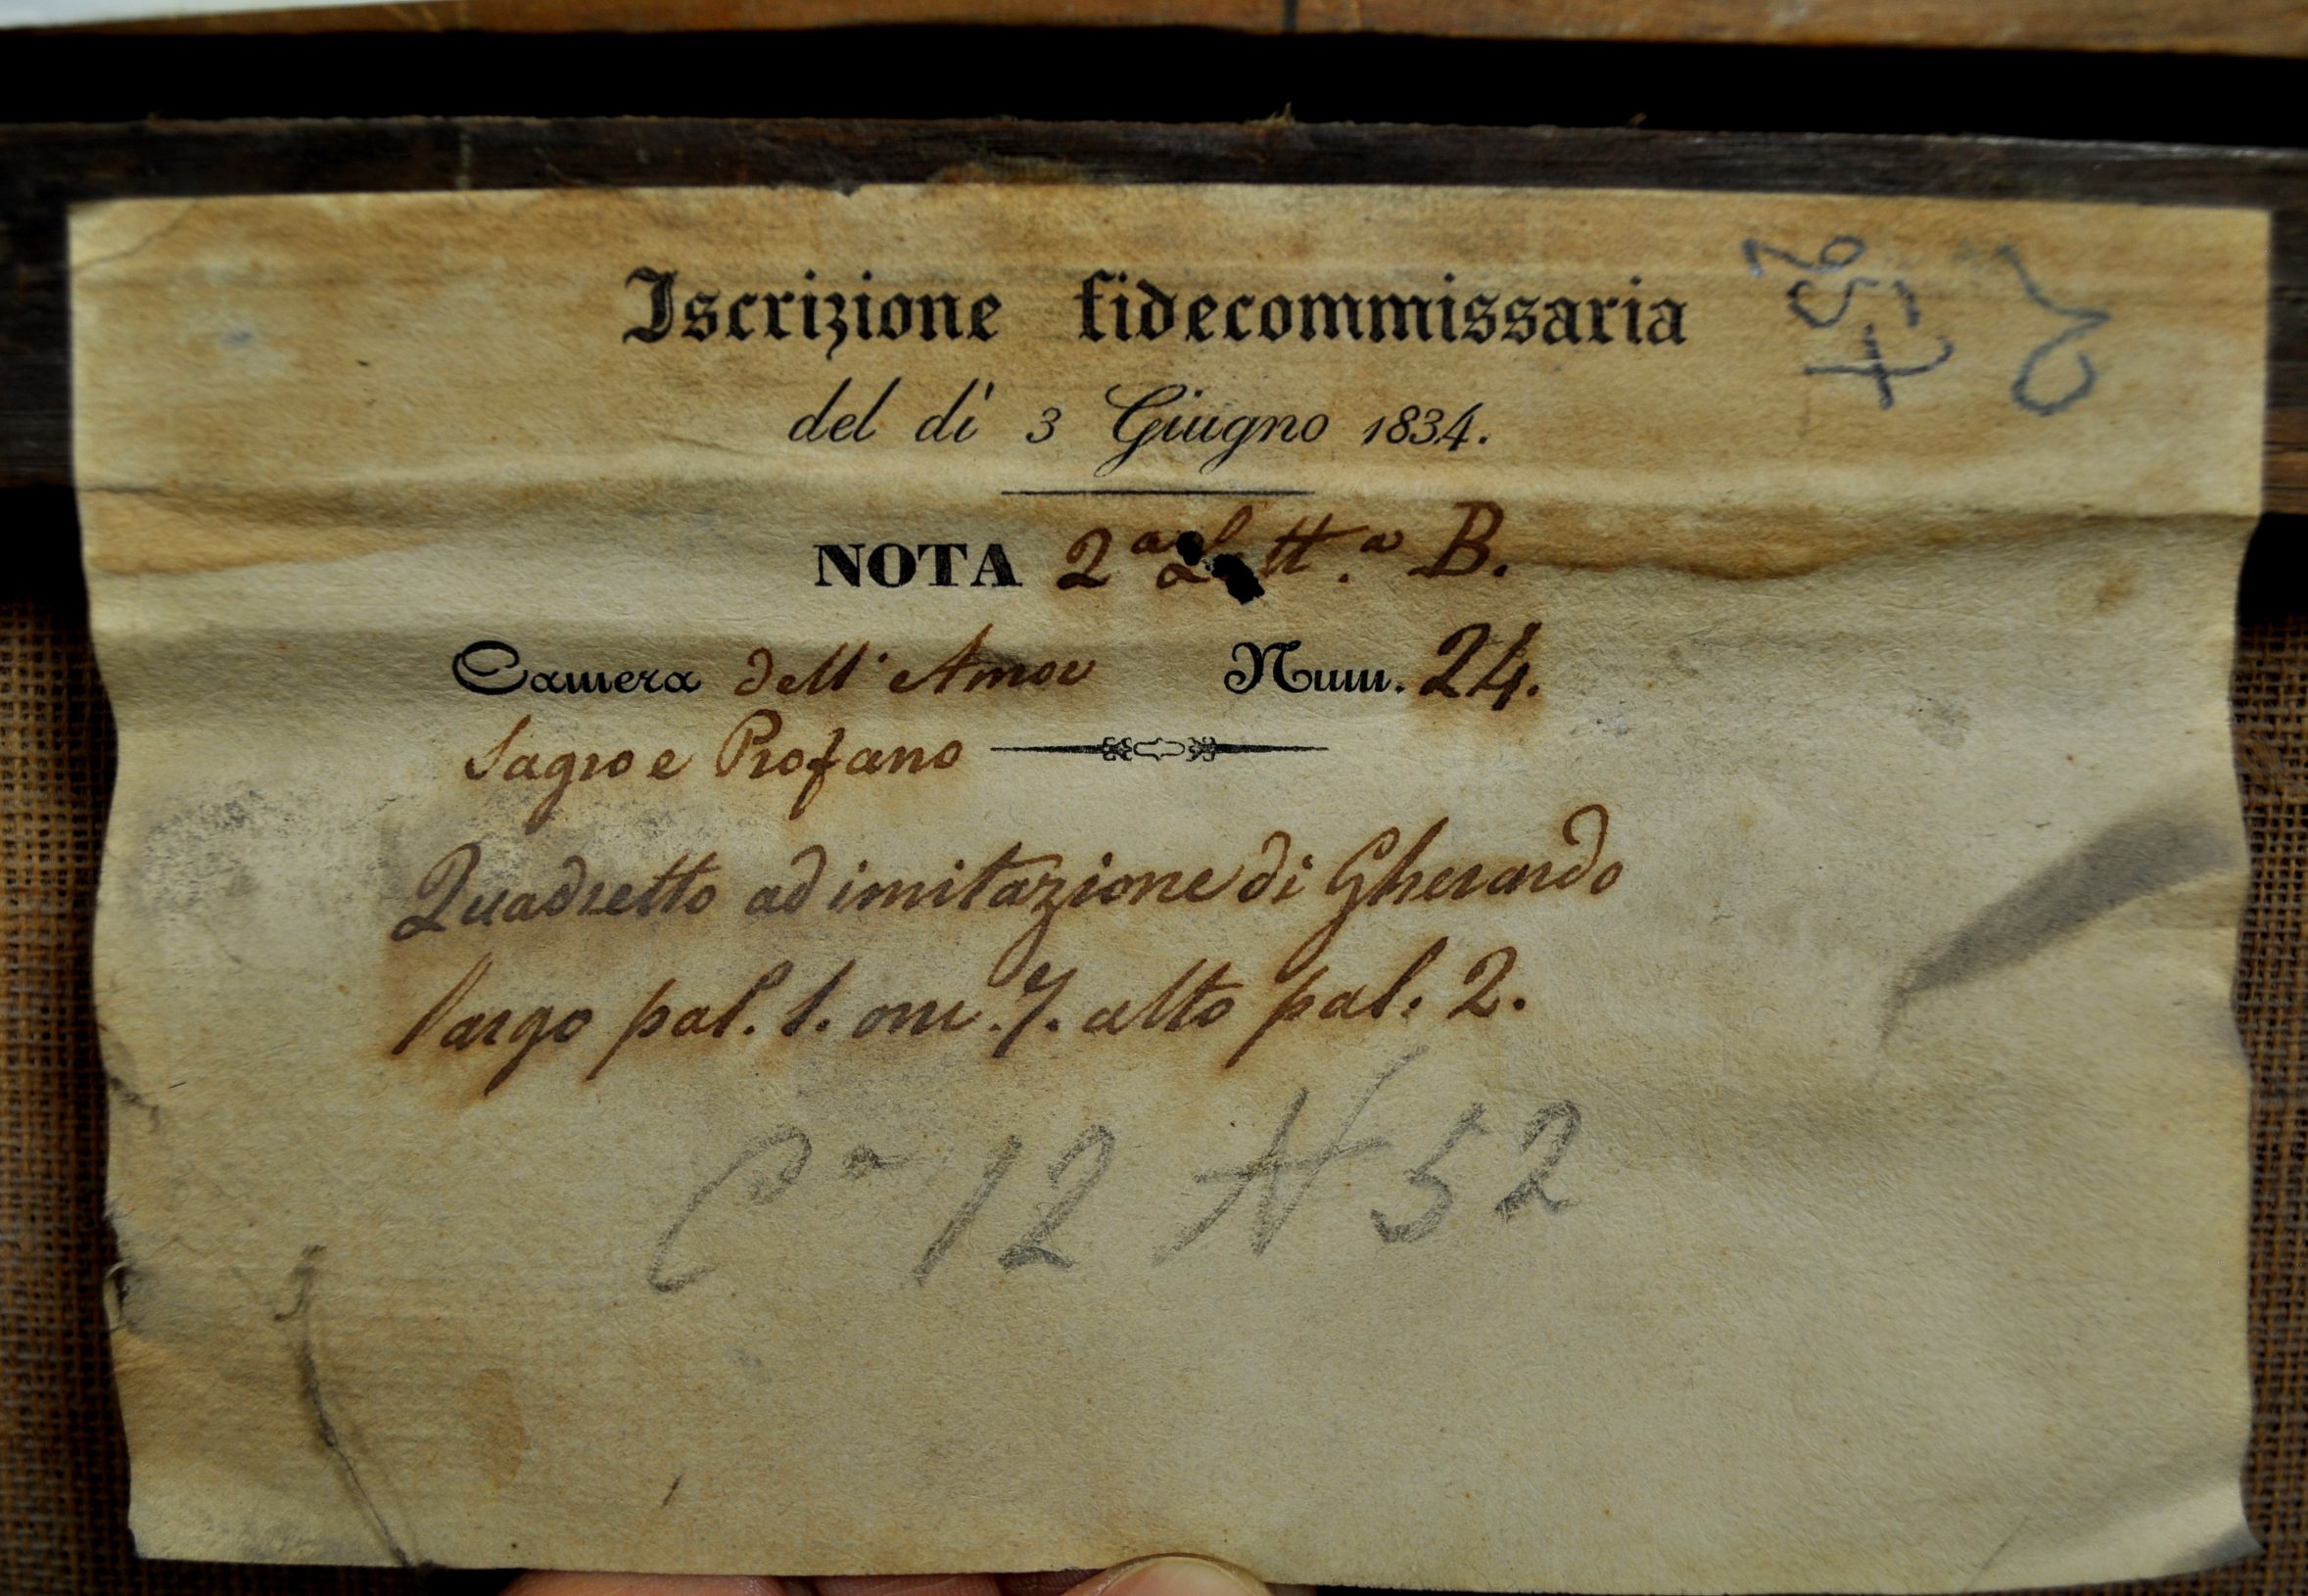 Iscrizione fidecommissaria
del dì 3 Giugno 1834.
NOTA 2ª Lett.ª B.
Camera dell' Amor Num. 24.
Sagro e Profano
Quadretto ad imitazione di Gherardo
largo pal. 1. on. 7. alto pal. 2.
Cª 12 N 52